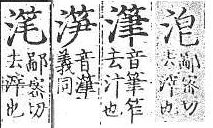 鄙密切
去滓也
潷
音筆笮
去汁也
音潷
義同
鄙密切
去滓也